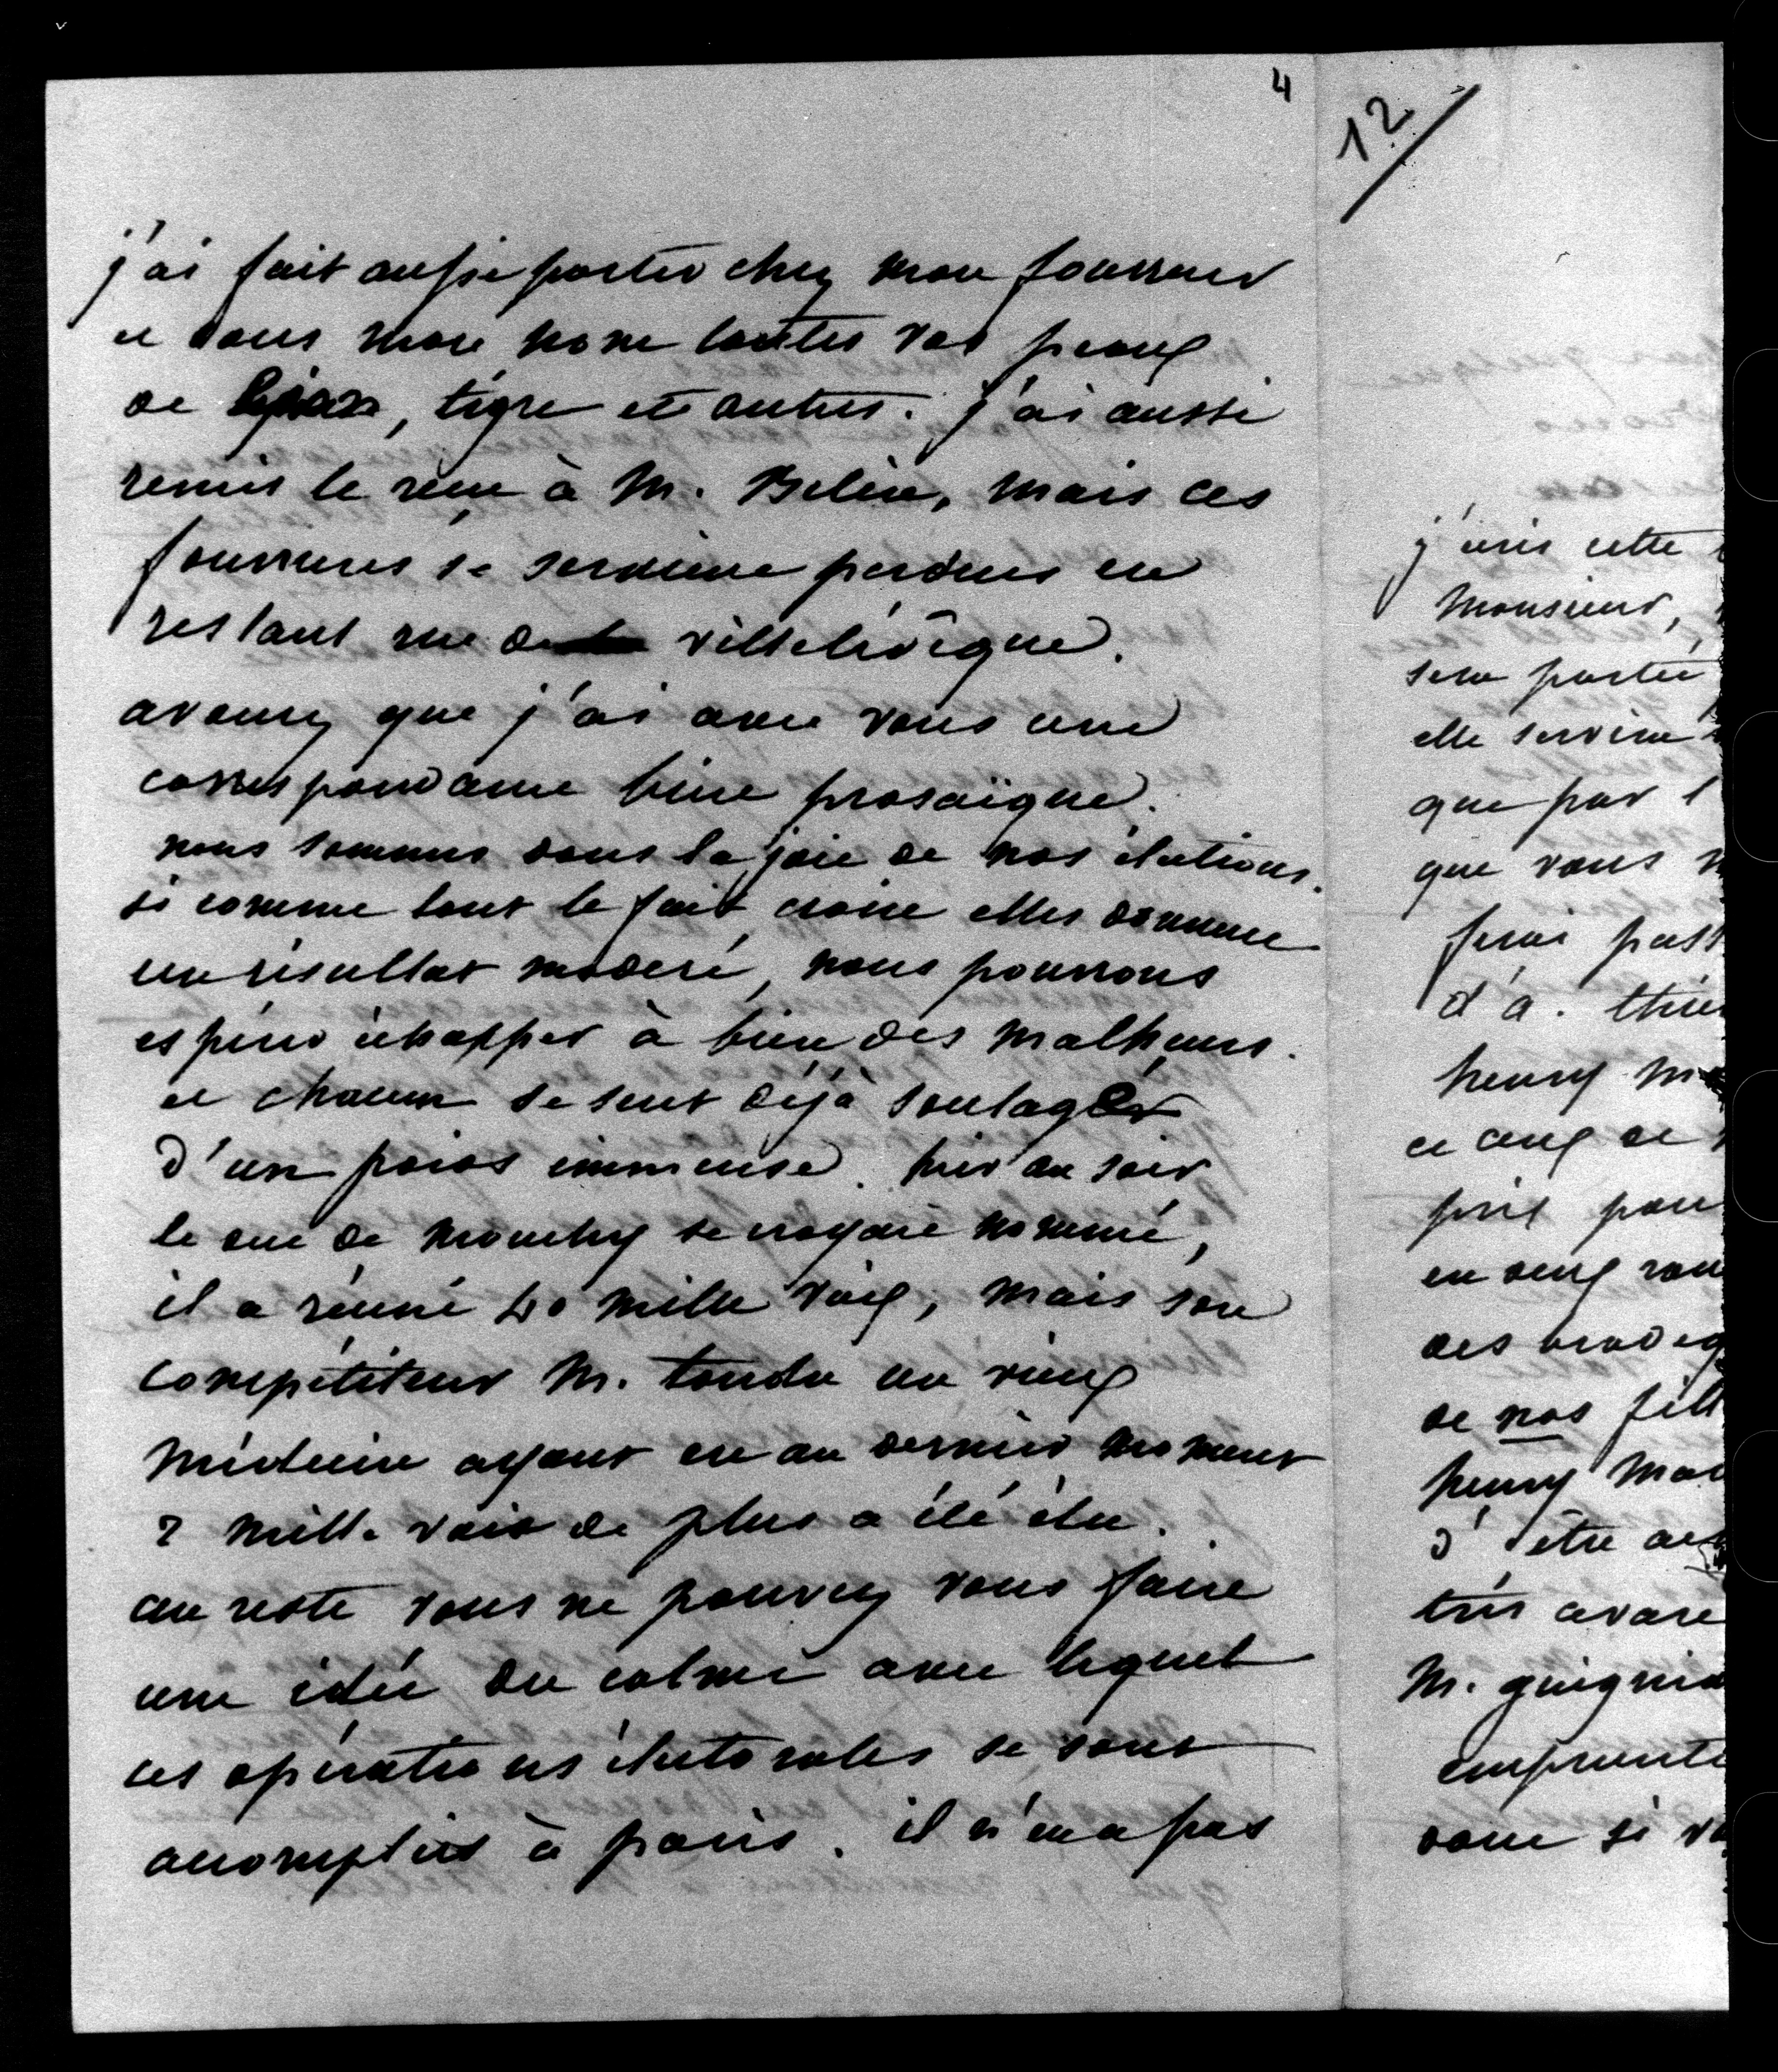 4
j'ai fait aussi porter chez mon fourreur
et sous mon nom toutes vos peaux
de , tigre et autres. j'ai aussi
remis le reçu à M. Belin, mais ces
fourrures se seraient perdues en
restant rue de ville l'évêque.
avouez que j'ai avec vous une
correspondance bien prosaïque.
nous sommes dans la joie de nos élections.
si comme tout le fait croire elles donnent
un résultat modéré, nous pourrons
espérer échapper à bien des malheurs.
et chacun se sent déjà soulager
d'un poids immense. hier au soir
le duc de mouchy se croyait nommé,
il a réuni 40 mille voix, mais son
compétiteur M. tondu un vieux
médecin ayant eu au dernier moment
2 mille voix de plus a été élu.
au reste vous ne pouvez vous faire
une idée du calme avec lequel
ces opérations électorales se sont
accomplies à paris. il n'en a pas
12
j'écris cette
Monsieur,
sera portée
elle servira
que par l
que vous
ferai pass
d'a. thier
henry m
et ceux de
prix pour
en deux
des
de nos fill
henry Mar
d'être
très avare
M. guignia
emprunte
donc si v